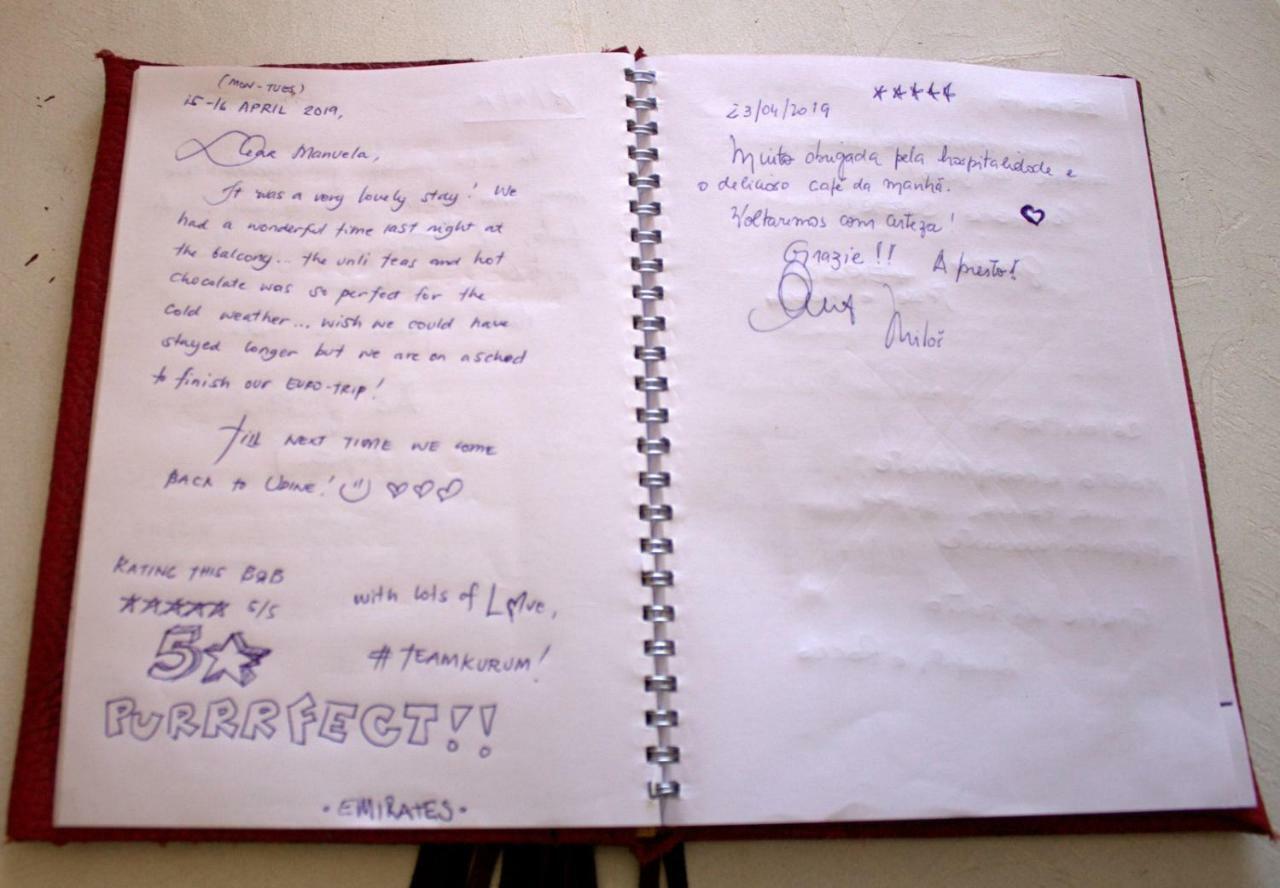 (MON-TUES)
15-16 APRIL 2019,
Dear Manuela,
It was a very lovely stay! We
had a wonderful time last night at
the balcony... the unli teas and hot
chocolate was so perfect for the
cold weather... wish we could have
stayed longer but we are on a sched
to finish our EURO-TRIP!
Till NEXT TIME WE COME
BACK to UDINE!
RATING THIS B&B
★★★★★ 5/5
5★
PURRRFECT!!
with lots of Love,
#TEAMKURUM!
• EMIRATES •
★★★★★
23/04/2019
Muito obrigada pela hospitalidade e
o delicioso café da manhã.
Voltaremos com certeza!
Grazie!! A presto!
Miloš